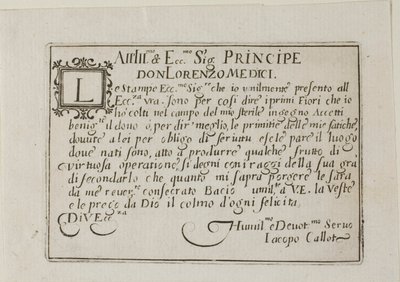 All Ill.mo & Ecc.mo Sig. PRINCIPE
DON LORENZO MEDICI.
Le Stampe Ecc.mo Sig.re che io vmilmente presento all
Ecc.za vra. sono per cosi dire i primi Fiori che io
ho colti nel campo del mio sterile ingegno Accetti
benig.te il dono ò, per dir meglio, le primitie delle mie fatiche,
douute a lei per obligo di seruitu e se le pare il luogo
doue nati sono, atto a produrre qualche frutto di
virtuosa operatione, si degni con i raggi della sua gra
di secondarlo che quanto mi saprà porgere le sarà
da me reuer.te consecrato Bacio umil.te a V.E. la Veste
e le prego da Dio il colmo d'ogni felicità
Di V. Ecc.za
Humil.e Deuot.mo Seruo
Iacopo Callot